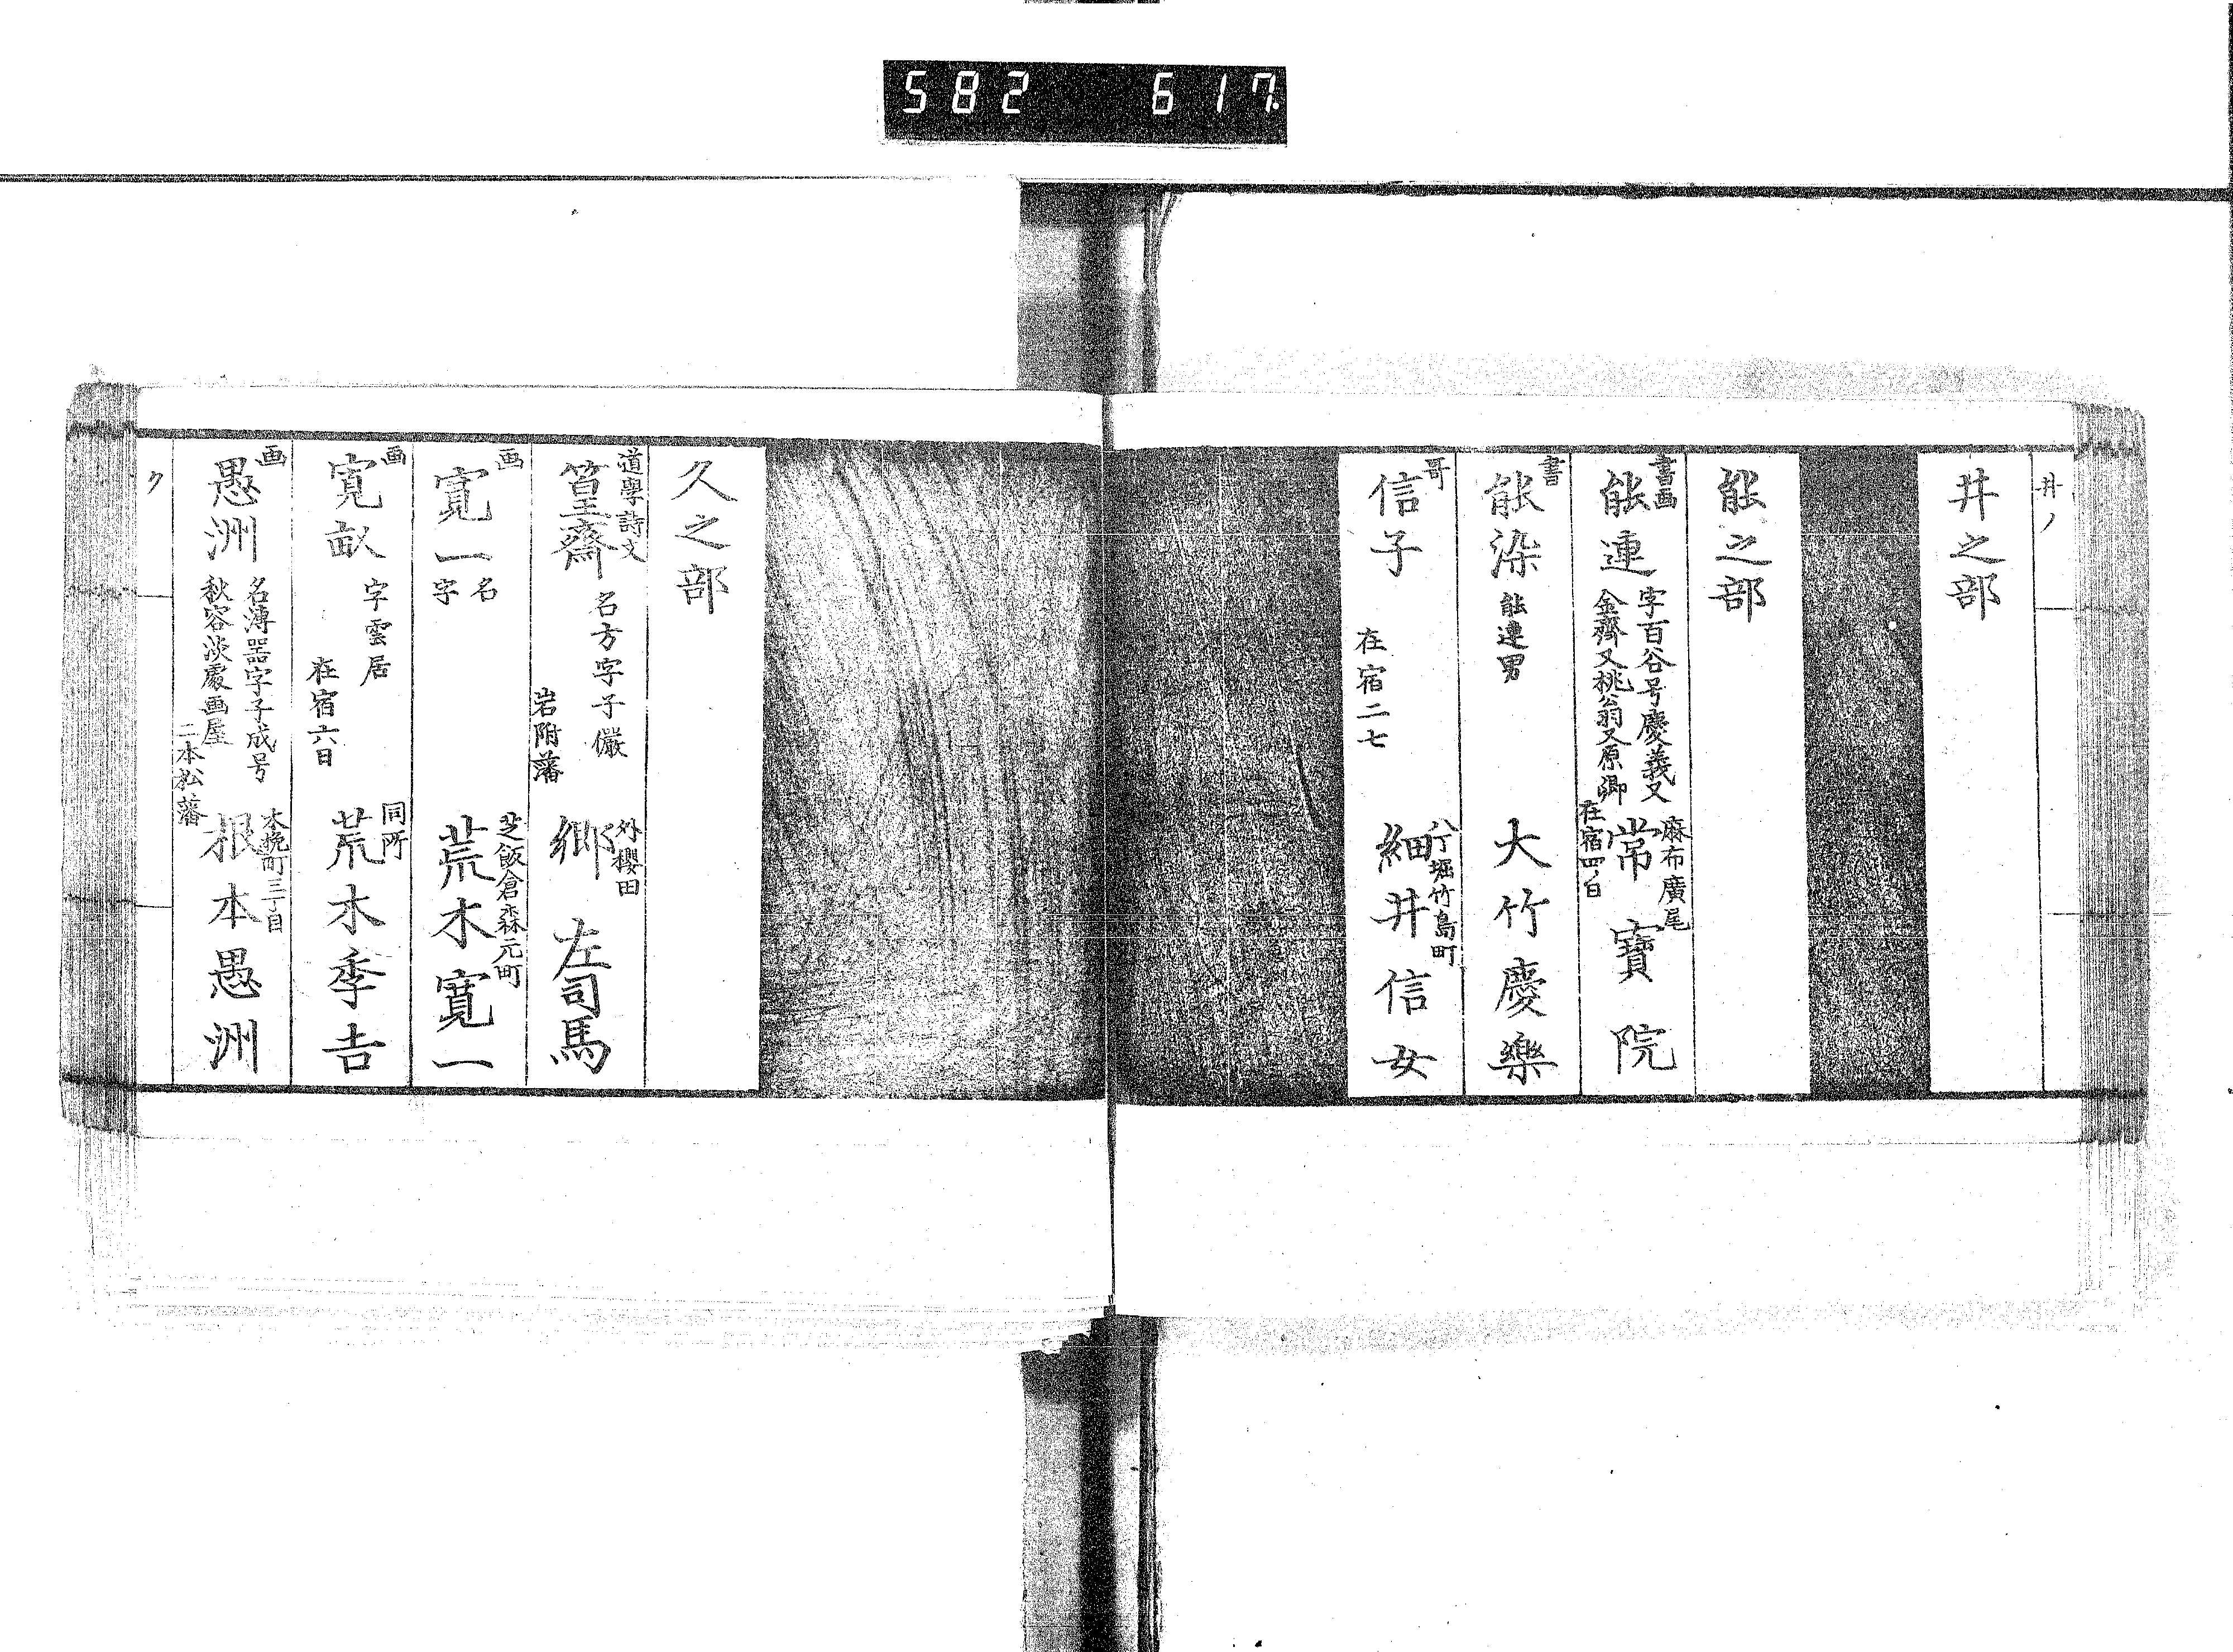 582 617
井ノ
井之部
能之部
書画
能連
字百谷号慶義又
金齋又桃翁又原卿
麻布廣尾
在宿四ノ日
常寳院
書
能染
能連男
大竹慶樂
哥
信子
在宿二七
八丁堀竹島町
細井信女
久之部
道學詩文
篁齋
名方字子儼
岩附藩
外櫻田
郷左司馬
画
寛一
名
字
芝飯倉森元町
荒木寛一
画
寛畝
字雲居
在宿六日
同所
荒木季吉
画
愚洲
名薄器字子成号
秋容淡處画屋
二本松藩
木挽町三丁目
根本愚洲
ク